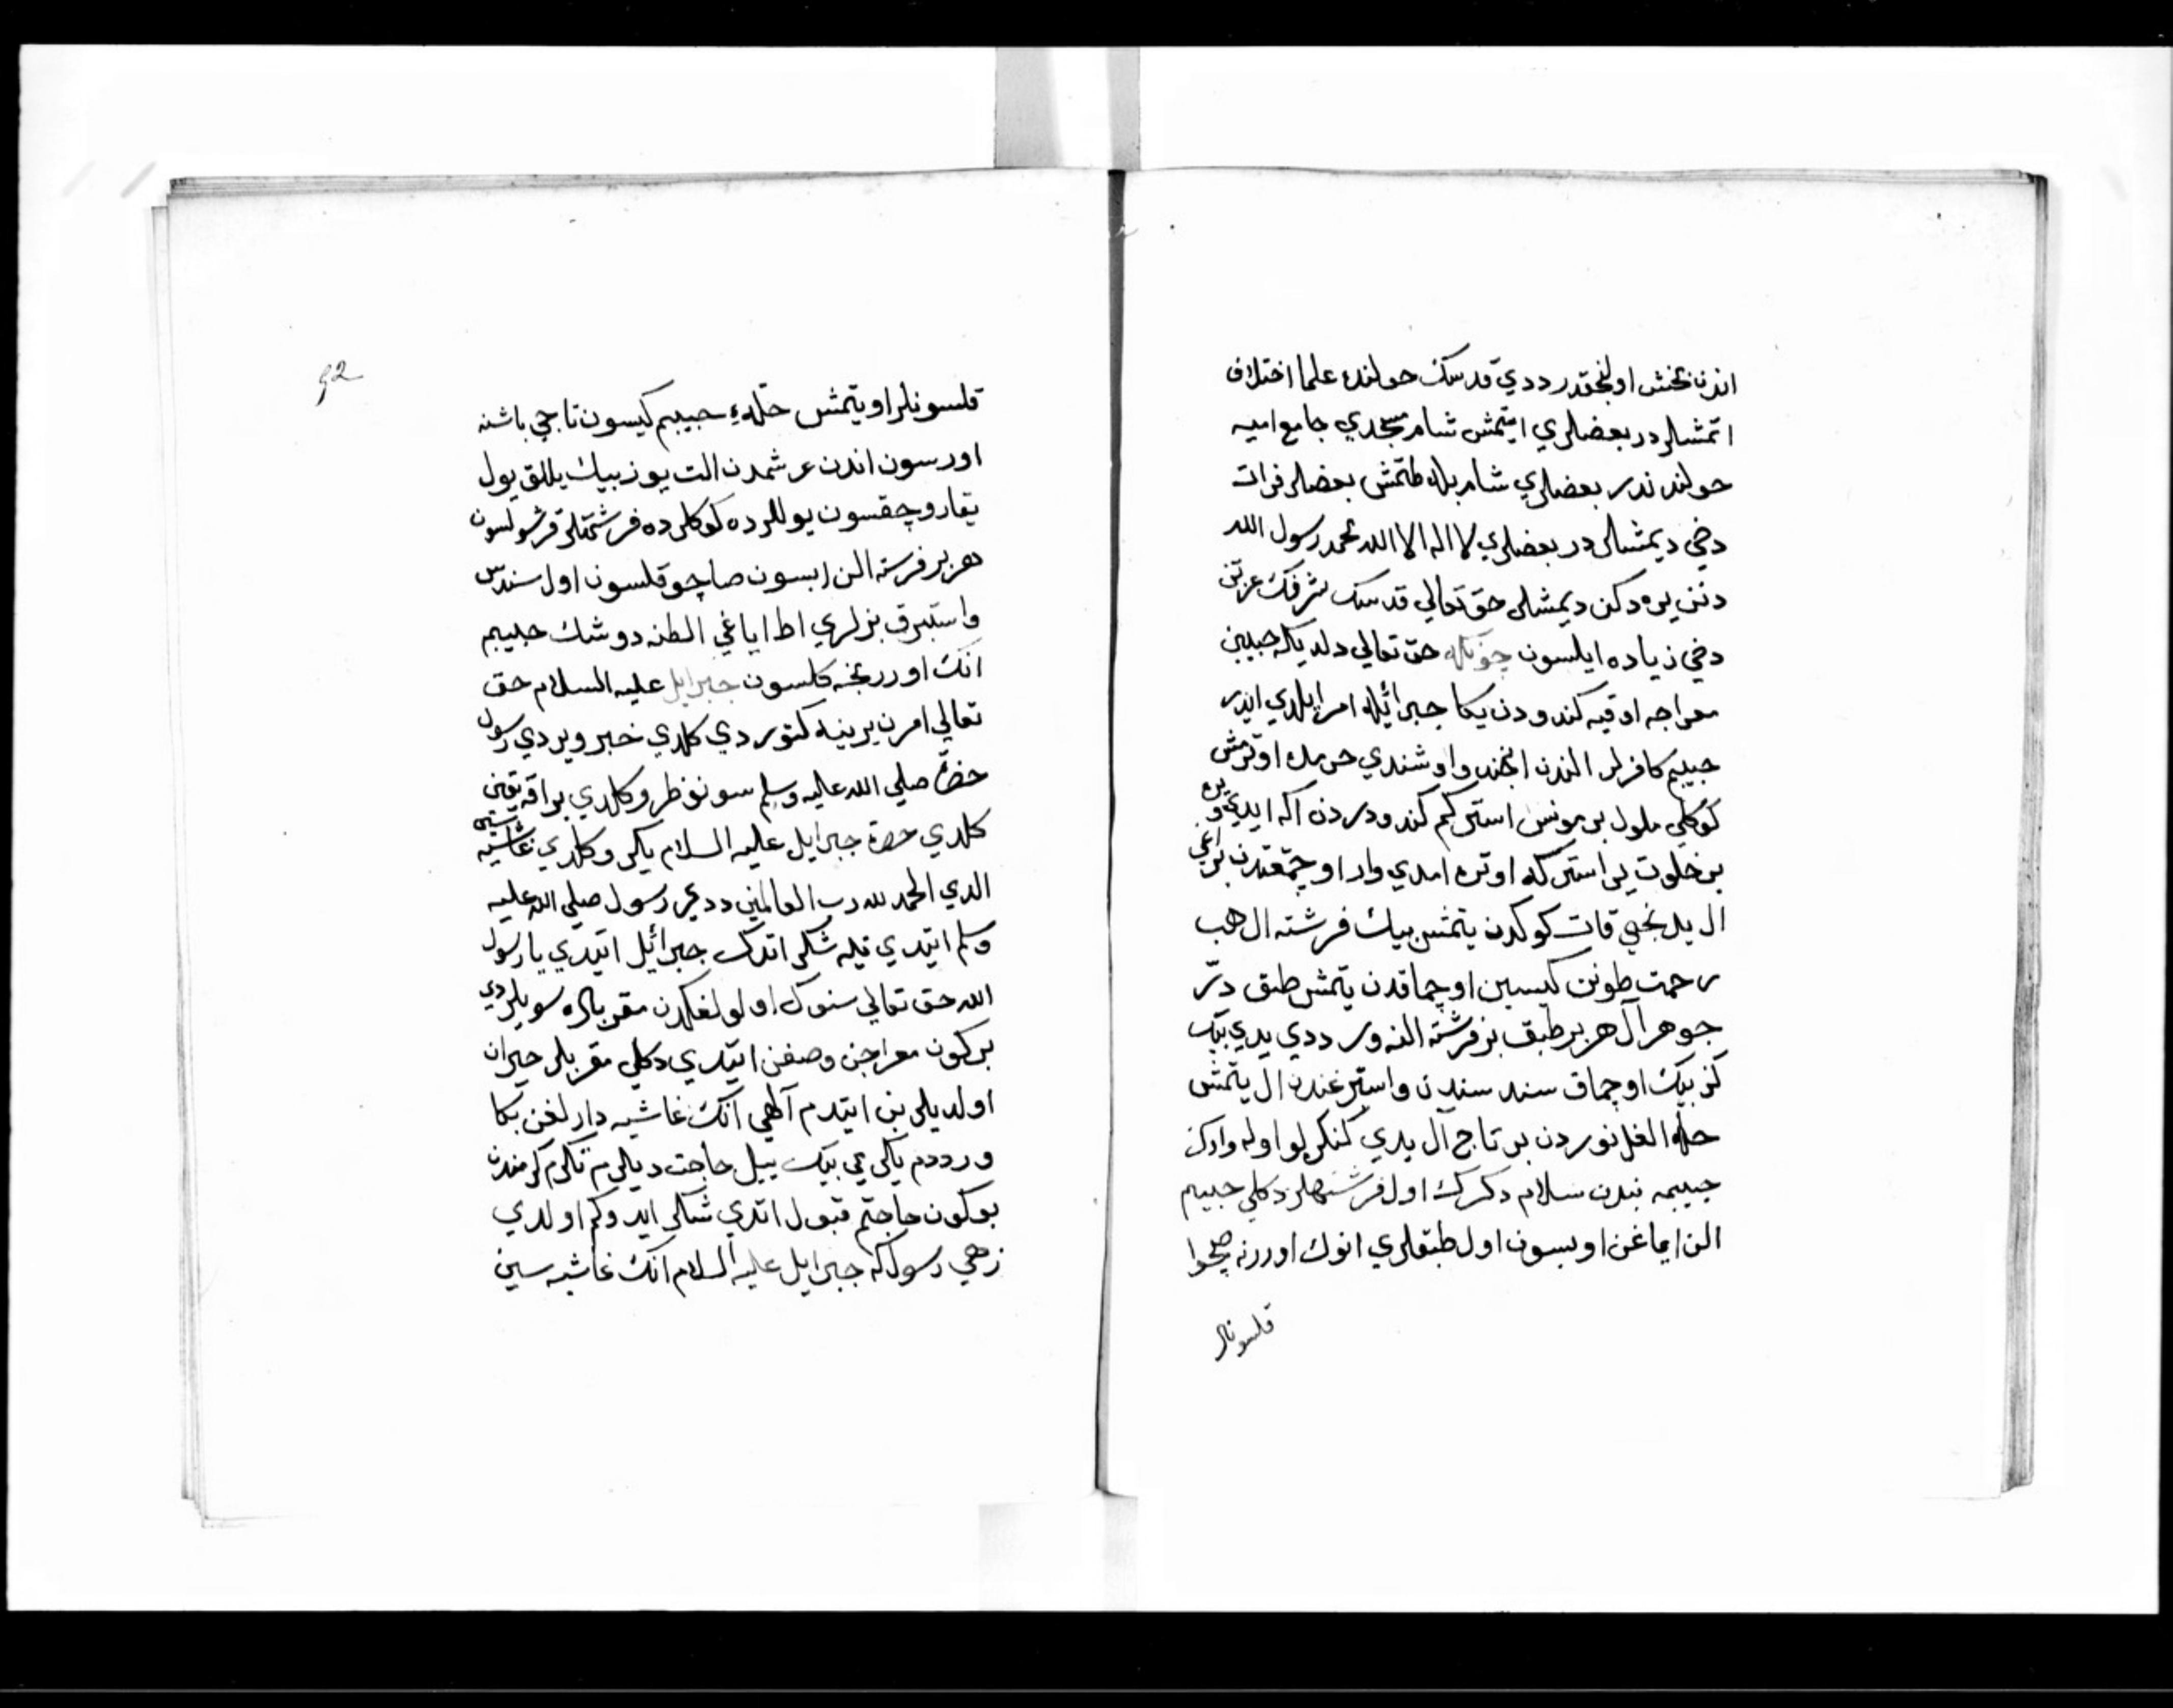 اندن بخشش اولنجقدر ددي قدسك حولنده علما اختلاف
اتمشلر در بعضلري ايتمش شام مسجدي جامع اميه
حولندندر بعضلري شام بله طتمش بعضلر فرات
دخي ديمشلر در بعضلري لا اله الا الله محمد رسول الله
دنن يره دكن ديمشلر حق تعالي قدسك شرفك عزتن
دخي زياده ايلسون چونكه حق تعالي دلديكه حبيبن
معراجه اوقيه كندودن يكا جبرائيله امر ايلدي ايدر
حبيبم كافرلر الندن انجند واوشندي حرمده اوترمش
كوكلي ملول بر مونس استركم كندو دردن اكه ايدي و يره
بر خلوت ير استركه اوتره امدي وار اوچمقدن براغي
ال يدنجي قات كوكدن يتمش بيك فرشته ال هب
رحمت طونن كيسين اوچماقدن يتمش طبق در
جوهر آل هر بر طبق بر فرشته النه ور ددي يدي بيك
كز بيك اوچماق سند سندن واستبرغندن ال يتمش
حله الغل نوردن بر تاج آل يدي كنكرلو اوله وارك
حبيبمه بندن سلام دكرك اول فرشتهلر دكلي حبيبم
الن اياغن اوبسون اول طبقلري انوك اوررنه صچوا
قلسونلر
92
قلسونلر اويتمش حلهء حبيبم كيسون تاجي باشنه
اورسون اندن عرشمدن الت يوز بيك يللق يول
يقارو چقسون يوللرده كوكلرده فرشتهلر قرشولسون
هر بر فرشته الن ابسون صاچو قلسون اول سندس
واستبرق بزلري اط اياغي الطنه دوشك حبيبم
انك اوررنجه كلسون جبرايل عليه السلام حق
تعالي امرن يرينه كتوردي كلدي خبر ويردي رسول
حضرت صلي الله عليه وسلم سونو طرو كلدي براقه بقين
كلدي حضرت جبرايل عليه السلام يكر وكلدي غاشيه سيني
الدي الحمد لله رب العالمين ددي رسول صلي الله عليه
وسلم ايتدي نيه شكر اتدك جبرائيل ايتدي يا رسول
الله حق تعالي سنوك اولولغكدن مقربلره سويلردي
بر كون معراجن وصفن ايتدي دكلي مقربلر حيران
اولديلر بن ايتدم آلهي انك غاشيه دارلغن بكا
ور ددم يكرمي بيك ييل حاجت ديلرم تكرم كرمندن
بو كون حاجتم قبول اتدي شكر ايدوكم اولدي
زهي رسول كه جبرايل عليه السلام انك غاشيه سين